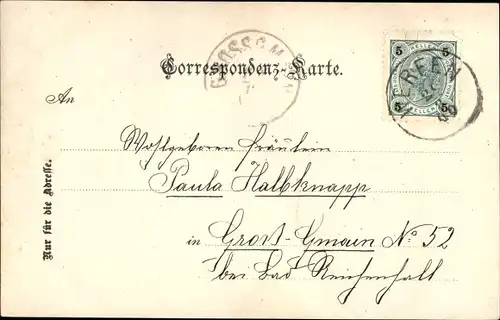 Correspondenz-Karte.
5 5
HELLER
5 5
An
Wohlgeboren Fräulein
Paula Halbknapp
in Groß-Gmain No 52
bei Bad Reichenhall
Nur für die Adresse.